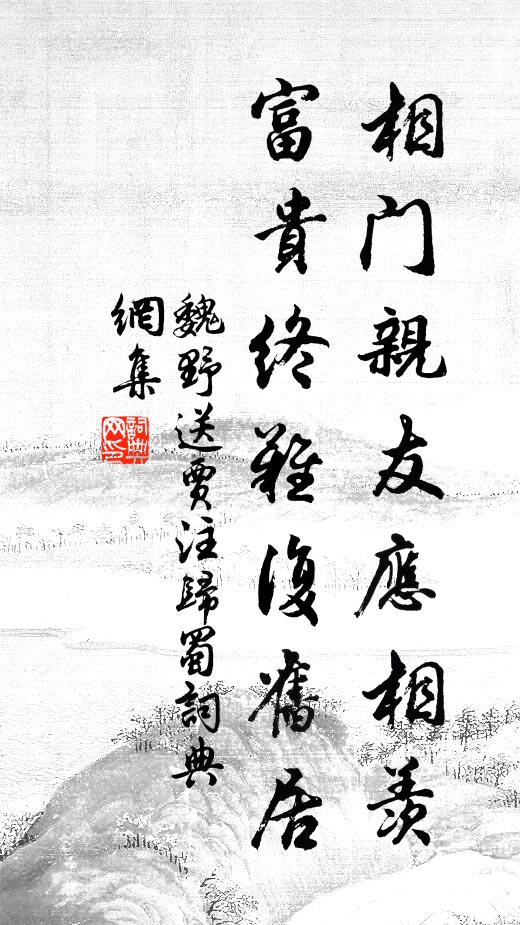 相門親友應相羨
富貴終難復舊居
魏野送賈注歸蜀詞典
網集
詞典
网印